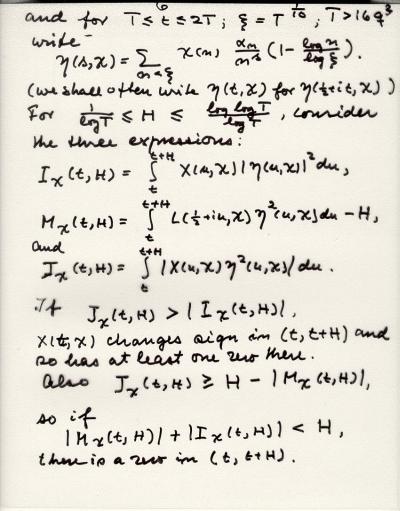 and for T ≤ t ≤ 2T; ξ = T^{1/10}; T > 16 q^3
write
η(s,χ) = Σ_{n<ξ} χ(n) α_n/n^s (1 - log n/log ξ).
(we shall often write η(t,χ) for η(½+it,χ))
For 1/log T ≤ H ≤ log log T/log T, consider
the three expressions:
I_χ(t,H) = ∫_t^{t+H} X(u,χ) |η(u,χ)|² du,
M_χ(t,H) = ∫_t^{t+H} L(½+iu,χ) η²(u,χ) du - H,
and
J_χ(t,H) = ∫_t^{t+H} |X(u,χ) η²(u,χ)| du.
If J_χ(t,H) > |I_χ(t,H)|,
X(t,χ) changes sign in (t,t+H) and
so has at least one zero there.
Also J_χ(t,H) ≥ H - |M_χ(t,H)|,
so if
|M_χ(t,H)| + |I_χ(t,H)| < H,
there is a zero in (t,t+H).